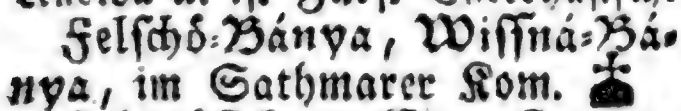 Felſchö⸗Bánya, Wiſſná⸗Bá⸗
nya, im Sathmarer Kom.